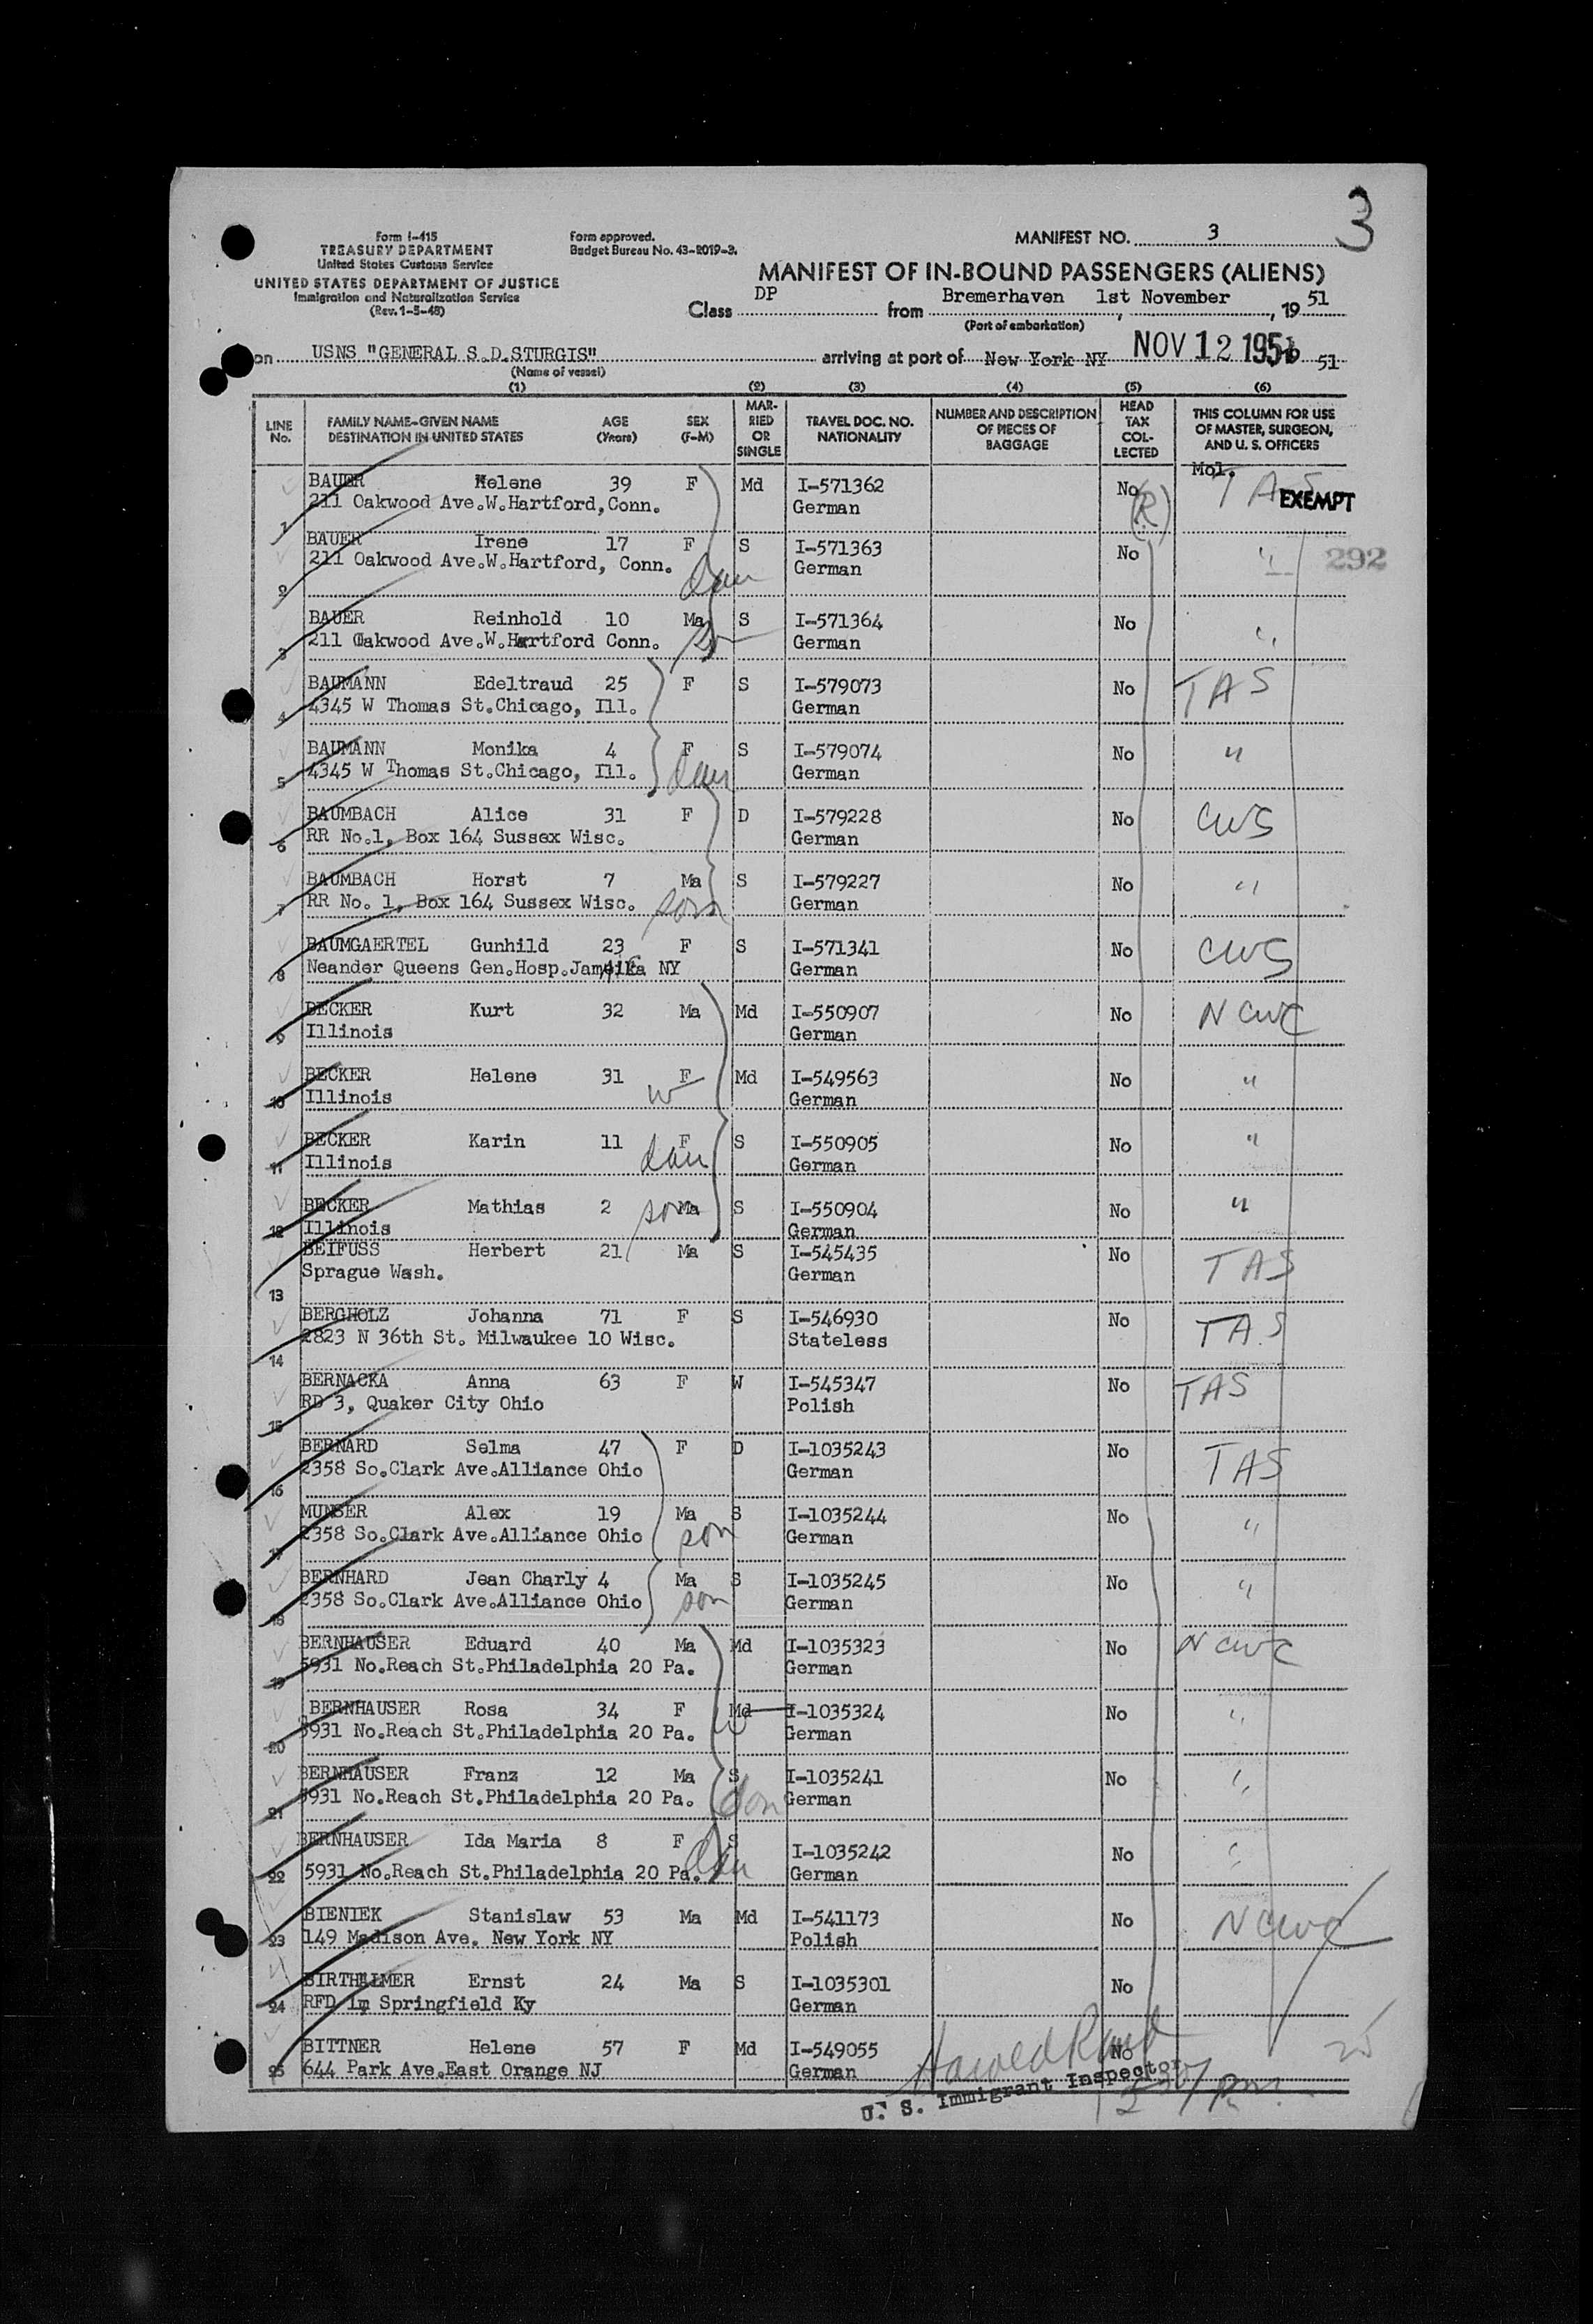 3
Form I-415
TREASURY DEPARTMENT
United States Customs Service
UNITED STATES DEPARTMENT OF JUSTICE
Immigration and Naturalization Service
(Rev. 1-5-48)
Form approved.
Budget Bureau No. 43-R019-3.
MANIFEST NO. 3
MANIFEST OF IN-BOUND PASSENGERS (ALIENS)
Class DP from Bremerhaven, 1st November, 19 51
(Port of embarkation)
on USNS "GENERAL S.D.STURGIS" arriving at port of New York NY NOV 12 195 51
(Name of vessel)
(1) (2) (3) (4) (5) (6)
LINE No. FAMILY NAME-GIVEN NAME DESTINATION IN UNITED STATES AGE (Years) SEX (F-M) MARRIED OR SINGLE TRAVEL DOC. NO. NATIONALITY NUMBER AND DESCRIPTION OF PIECES OF BAGGAGE HEAD TAX COLLECTED THIS COLUMN FOR USE OF MASTER, SURGEON, AND U. S. OFFICERS
Mol.
BAUER Helene 39 F Md I-571362 No (R) TAS EXEMPT
1 211 Oakwood Ave.W.Hartford,Conn. German
BAUER Irene 17 F S I-571363 No " 292
2 211 Oakwood Ave.W.Hartford, Conn. dau German
BAUER Reinhold 10 Ma S I-571364 No "
3 211 Oakwood Ave.W.Hartford Conn. son German
BAUMANN Edeltraud 25 F S I-579073 No TAS
4 4345 W Thomas St.Chicago, Ill. German
BAUMANN Monika 4 F S I-579074 No "
5 4345 W Thomas St.Chicago, Ill. dau German
BAUMBACH Alice 31 F D I-579228 No CWS
6 RR No.1, Box 164 Sussex Wisc. German
BAUMBACH Horst 7 Ma S I-579227 No "
7 RR No. 1, Box 164 Sussex Wisc. son German
BAUMGAERTEL Gunhild 23 F S I-571341 No CWS
8 Neander Queens Gen.Hosp.Jamaika NY German
BECKER Kurt 32 Ma Md I-550907 No NCWC
9 Illinois German
BECKER Helene 31 F Md I-549563 No "
10 Illinois w German
BECKER Karin 11 F S I-550905 No "
11 Illinois dau German
BECKER Mathias 2 son Ma S I-550904 No "
12 Illinois German
BEIFUSS Herbert 21 Ma S I-545435 No TAS
Sprague Wash. German
13
BERGHOLZ Johanna 71 F S I-546930 No TAS
2823 N 36th St. Milwaukee 10 Wisc. Stateless
14
BERNACKA Anna 63 F W I-545347 No TAS
15 RD 3, Quaker City Ohio Polish
BERNARD Selma 47 F D I-1035243 No TAS
16 2358 So.Clark Ave.Alliance Ohio German
MUNSER Alex 19 Ma S I-1035244 No "
17 2358 So.Clark Ave.Alliance Ohio son German
BERNHARD Jean Charly 4 Ma S I-1035245 No "
18 2358 So.Clark Ave.Alliance Ohio son German
BERNHAUSER Eduard 40 Ma Md I-1035323 No NCWC
19 5931 No.Reach St.Philadelphia 20 Pa. German
BERNHAUSER Rosa 34 F Md I-1035324 No "
20 5931 No.Reach St.Philadelphia 20 Pa. w German
BERNHAUSER Franz 12 Ma S I-1035241 No "
21 5931 No.Reach St.Philadelphia 20 Pa. son German
BERNHAUSER Ida Maria 8 F S I-1035242 No "
22 5931 No.Reach St.Philadelphia 20 Pa. dau German
BIENIEK Stanislaw 53 Ma Md I-541173 No NCWC
23 149 Madison Ave. New York NY Polish
BIRTHELMER Ernst 24 Ma S I-1035301 No
24 RFD 1, Springfield Ky German
BITTNER Helene 57 F Md I-549055 No
25 644 Park Ave.East Orange NJ German
U. S. Immigrant Inspector